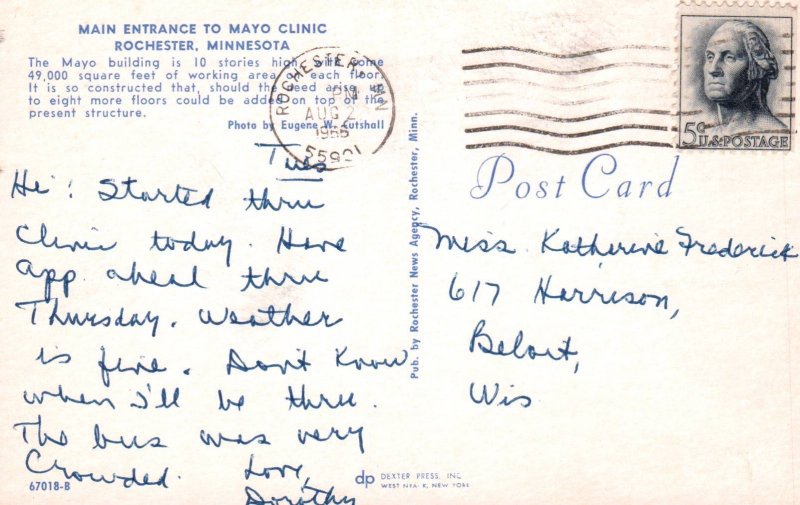 MAIN ENTRANCE TO MAYO CLINIC
ROCHESTER, MINNESOTA
The Mayo building is 10 stories high with some
49,000 square feet of working area each floor.
It is so constructed that, should the need arise, up
to eight more floors could be added on top of the
present structure.
Photo by Eugene W. Cutshall
ROCHESTER, MN
PM
AUG 2
1966
55901
5¢ U.S. POSTAGE
Post Card
Tues
Hi! Started thru
Clinic today. Have
app. ahead thru
Thursday. Weather
is fine. Don't Know
when I'll be thru.
The bus was very
Crowded. Love,
Dorothy
Miss Katherine Frederick
617 Harrison,
Beloit,
Wis
Pub. by Rochester News Agency, Rochester, Minn.
67018-B
dp DEXTER PRESS, INC.
WEST NYACK, NEW YORK